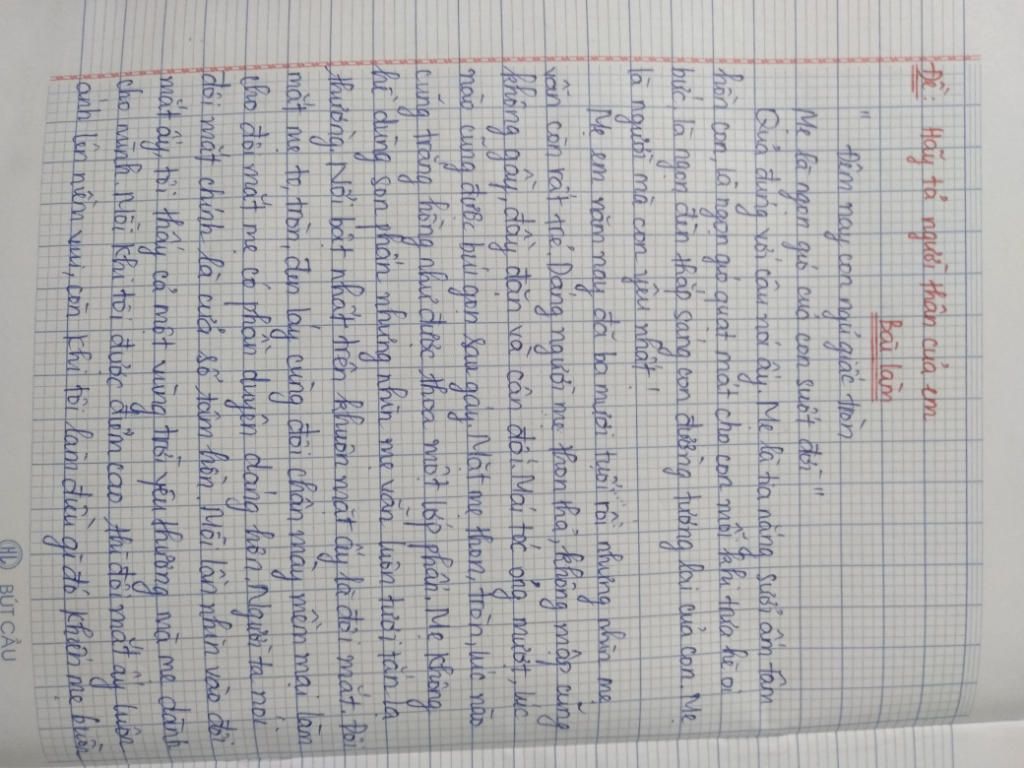 Đề: Hãy tả người thân của em
Bài làm
" Đêm nay con ngủ giấc tròn
Mẹ là ngọn gió của con suốt đời "
Quả đúng với câu nói ấy. Mẹ là tia nắng sưởi ấm tâm
hồn con, là ngọn gió quạt mát cho con mỗi khi trưa hè oi
bức, là ngọn đèn thắp sáng con đường tương lai của con. Mẹ
là người mà con yêu nhất!
Mẹ em năm nay đã ba mươi tuổi rồi nhưng nhìn mẹ
vẫn còn rất trẻ. Dáng người mẹ thon thả, không mập cũng
không gầy, đầy đặn và cân đối. Mái tóc óng mượt, lúc
nào cũng được búi gọn sau gáy. Mặt mẹ thon, tròn, lúc nào
cũng trắng hồng như được thoa một lớp phấn. Mẹ không
hề dùng son phấn nhưng nhìn mẹ vẫn luôn tươi tắn lạ
thường. Nổi bật nhất trên khuôn mặt ấy là đôi mắt. Đôi
mắt mẹ to, tròn, đen láy cùng đôi chân mày mềm mại làm
cho đôi mắt mẹ có phần duyên dáng hơn. Người ta nói
đôi mắt chính là cửa sổ tâm hồn. Mỗi lần nhìn vào đôi
mắt ấy, tôi thấy cả một vùng trời yêu thương mà mẹ dành
cho mình. Mỗi khi tôi được điểm cao thì đôi mắt ấy luôn
ánh lên niềm vui, còn khi tôi làm điều gì đó khiến mẹ buồn
BÚT CẦU